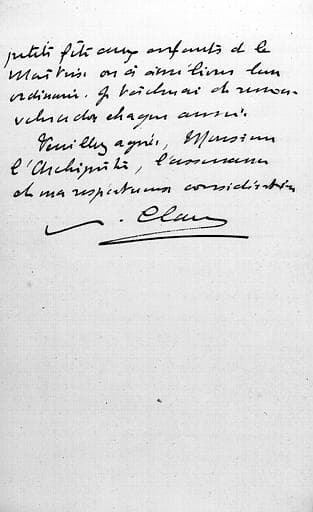 petite fête aux enfants de la
Maîtrise ou à améliorer leur
ordinaire. Je tâcherai de renou-
veler ce don chaque année.
Veuillez agréer, Monsieur
l'Archiprêtre, l'assurance
de ma respectueuse considération